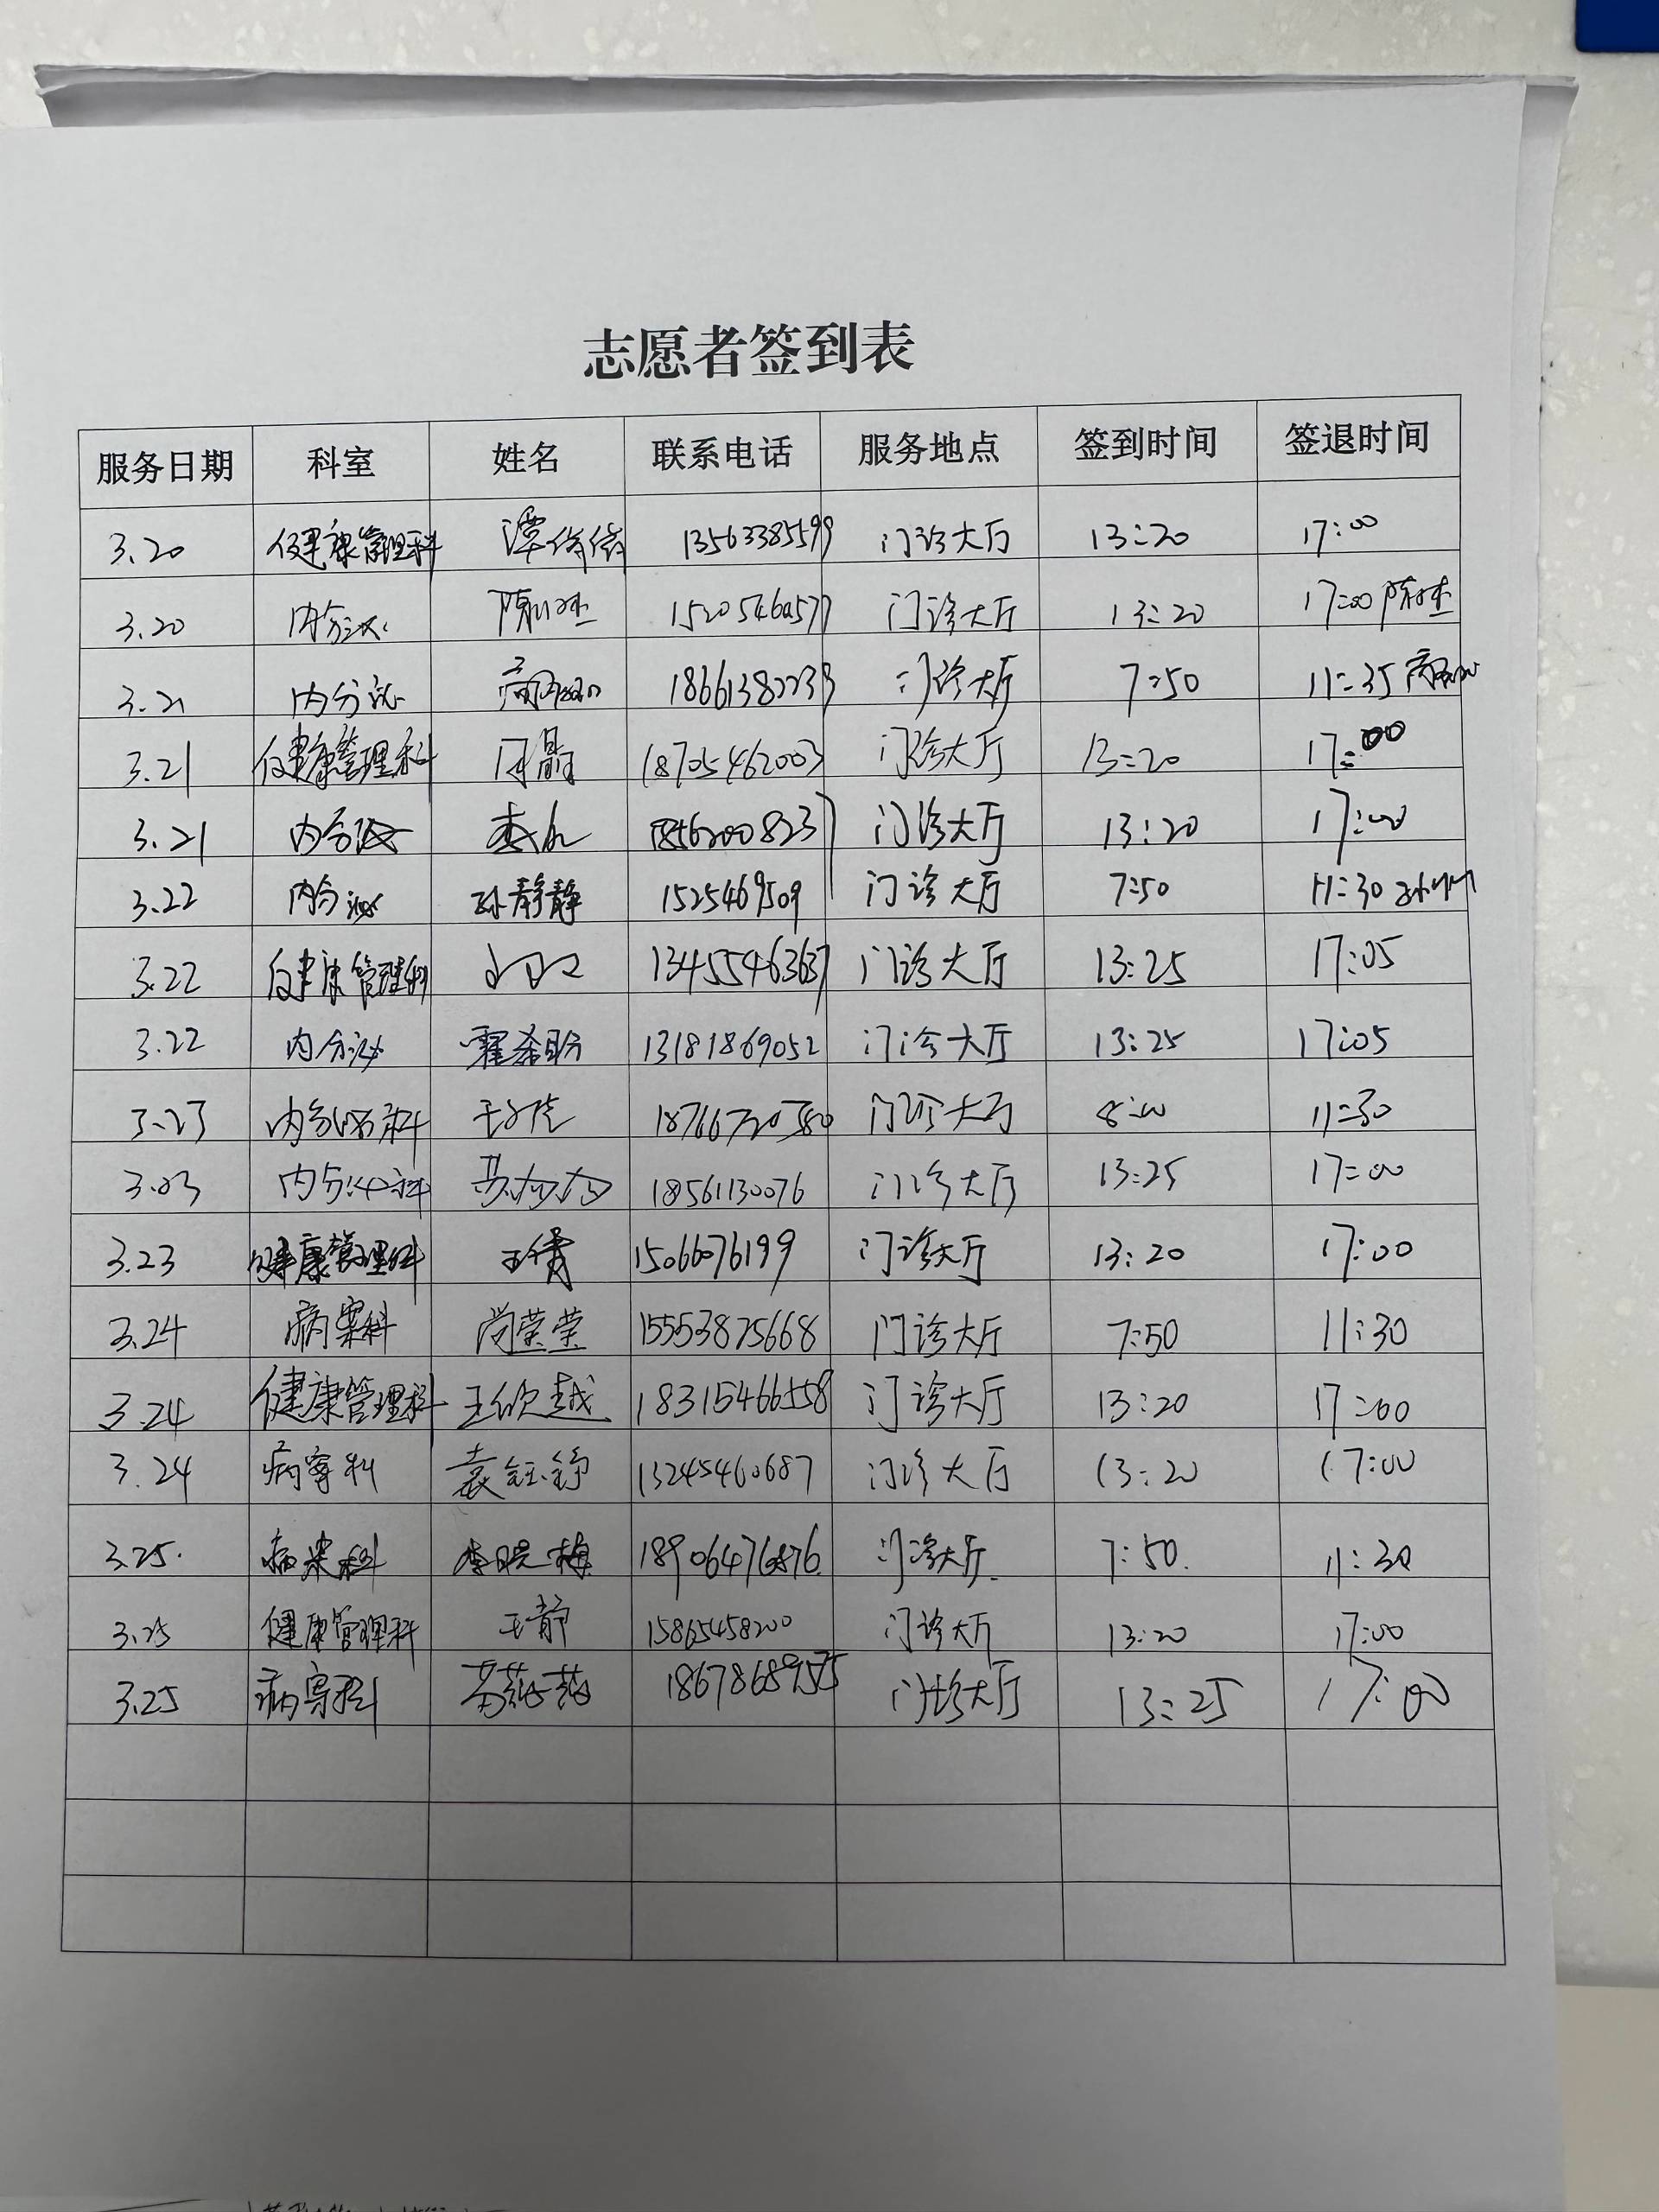 志愿者签到表
服务日期 科室 姓名 联系电话 服务地点 签到时间 签退时间
3.20 健康管理科 谭 13563385599 门诊大厅 13:20 17:00
3.20 内分泌 陈 门诊大厅 13:20 17:00 陈
3.21 内分泌 18661382239 门诊大厅 7:50 11:35
3.21 健康管理科 闫晶 18705462003 门诊大厅 13:20 17:00
3.21 内分泌 门诊大厅 13:20 17:00
3.22 内分泌 孙静静 1525469509 门诊大厅 7:50 11:30
3.22 健康管理科 13455546367 门诊大厅 13:25 17:05
3.22 内分泌 13181869052 门诊大厅 13:25 17:05
3.23 内分泌科 门诊大厅 8:00 11:30
3.03 内分泌科 18561130076 门诊大厅 13:25 17:00
3.23 健康管理科 王倩 15066076199 门诊大厅 13:20 17:00
3.24 病案科 尚莹莹 15553875668 门诊大厅 7:50 11:30
3.24 健康管理科 王欣越 18315466558 门诊大厅 13:20 17:00
3.24 病案科 袁钰铮 13245460687 门诊大厅 13:20 17:00
3.25. 病案科 李晓梅 门诊大厅. 7:50. 11:30
3.25 健康管理科 王静 15865458200 门诊大厅 13:20 17:00
3.25 病案科 门诊大厅 13:25 17:00